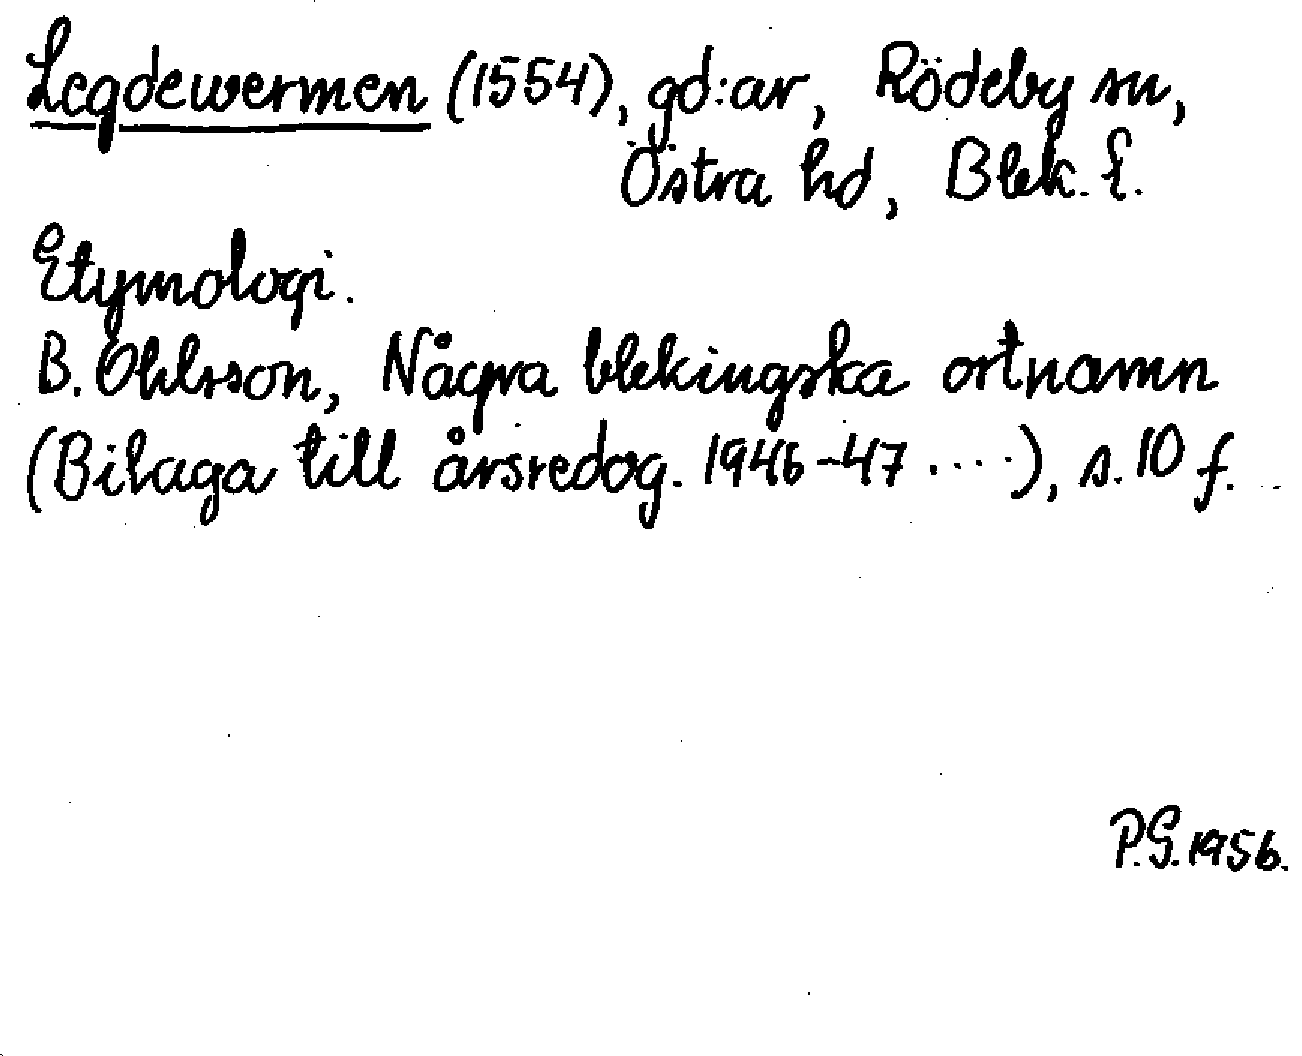 Legdewermen (1554), gd:ar, Rödeby sn,
Östra hd, Blek. l.
Etymologi.
B. Ohlsson, Några blekingska ortnamn
(Bilaga till årsredog. 1946-47 ....), s. 10 f.
P.G. 1956.